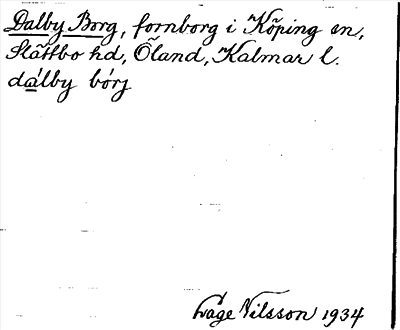 Dalby Borg, fornborg i Köping sn,
Slättbo hd, Öland, Kalmar l.
dálby bórj
Åage Nilsson 1934